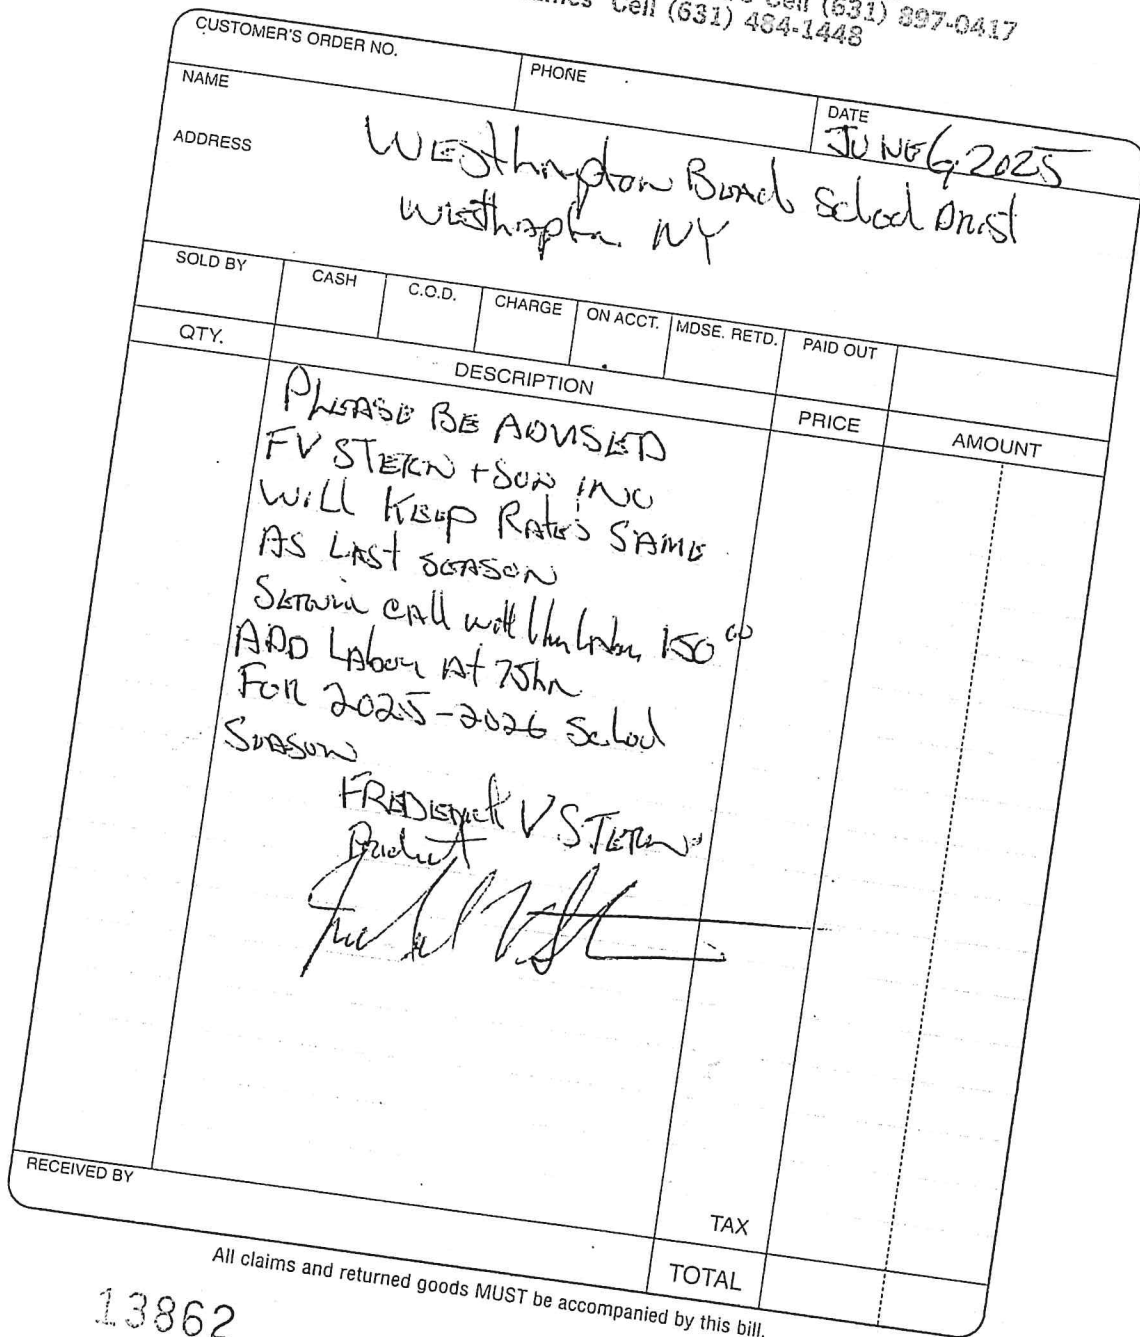 Cell (631) 897-0417
Cell (631) 484-1448
CUSTOMER'S ORDER NO.
PHONE
DATE
JUNE 6, 2025
NAME
ADDRESS
Westhampton Beach School Dist
Westhampton NY
SOLD BY
CASH
C.O.D.
CHARGE
ON ACCT.
MDSE. RETD.
PAID OUT
QTY.
DESCRIPTION
PRICE
AMOUNT
PLEASE BE ADVISED
FV STERN + SON INC
WILL KEEP RATES SAME
AS LAST SEASON
Service CALL with 1hr Labor 150 00
ADD Labor At 75hr
FOR 2025-2026 School
SEASON
FREDERICK V STERN
President
RECEIVED BY
TAX
TOTAL
All claims and returned goods MUST be accompanied by this bill.
13862